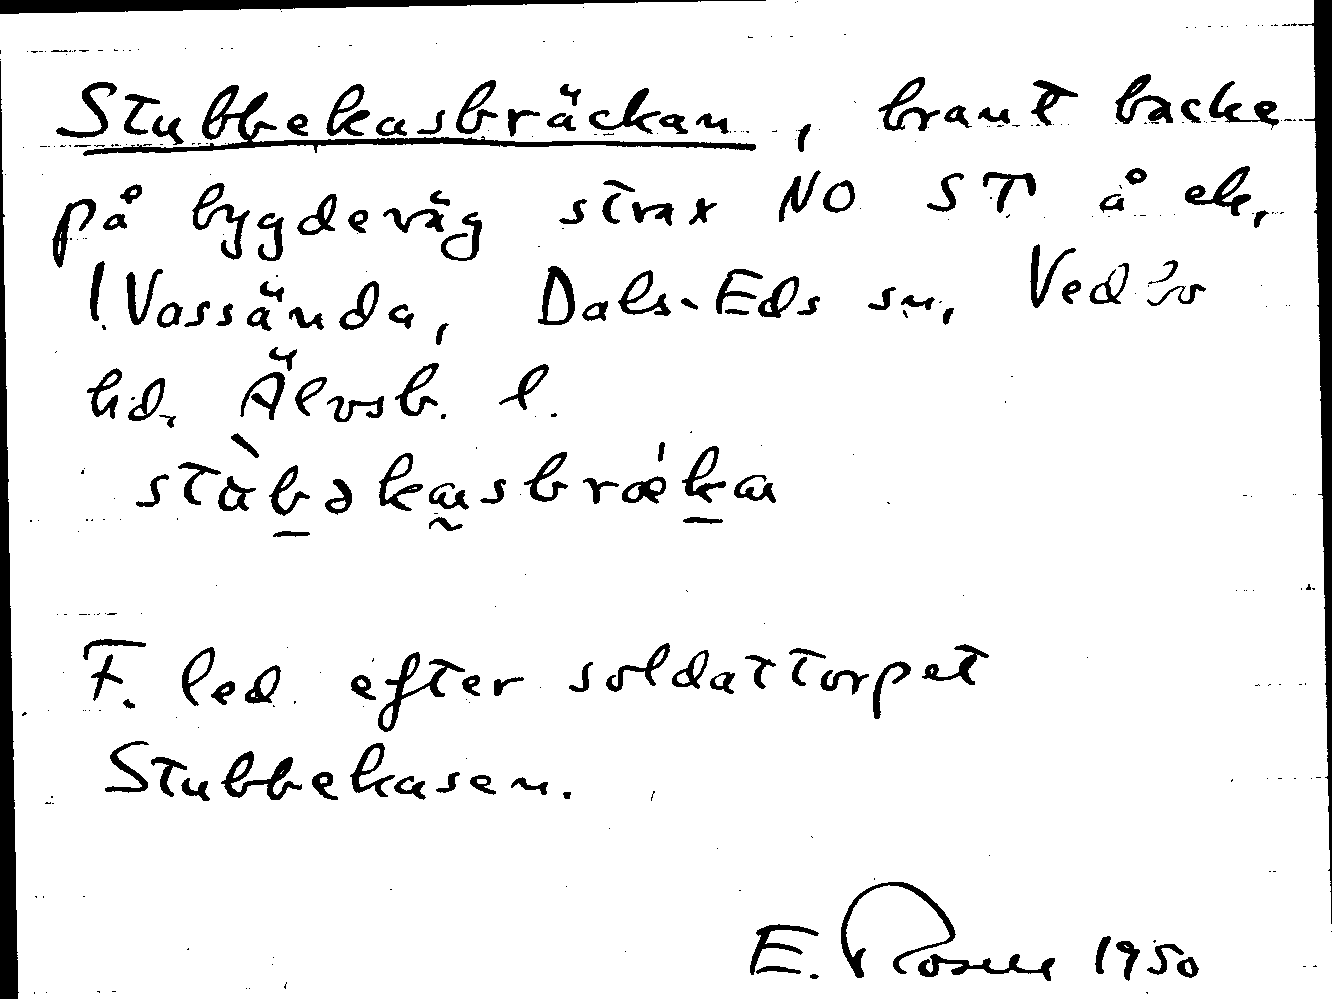 Stubbekasbräckan, brant backe
på bygdeväg strax NO ST å ek.
l. Vassända, Dals-Eds sn, Vedbo
hd. Älvsb. l.
stùbəkasbrǽka
F. led efter soldattorpet
Stubbekasen.
E. Rosell 1950